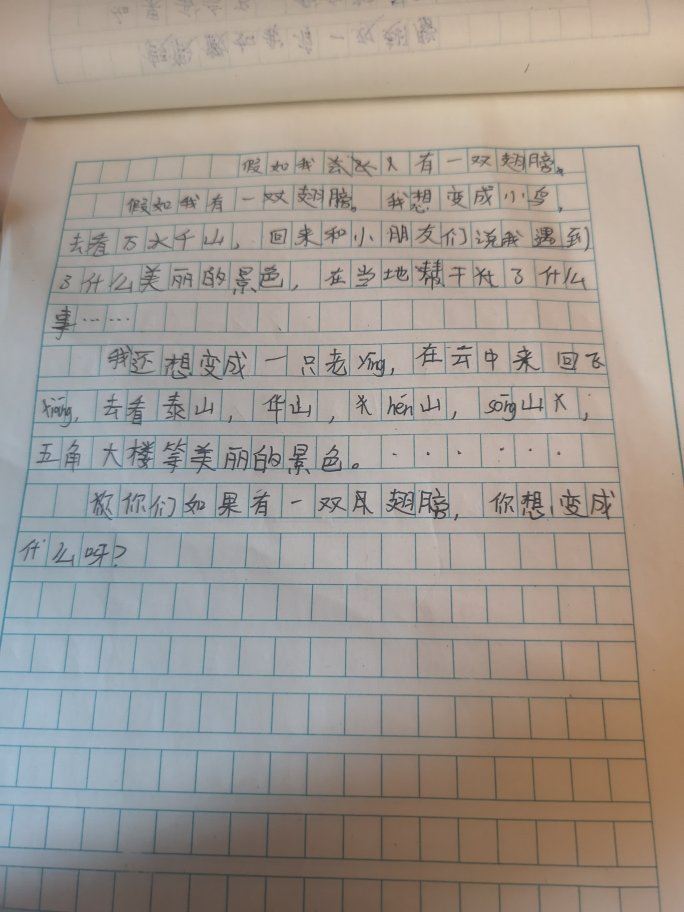 假如我有一双翅膀。
假如我有一双翅膀。我想变成小鸟，
去看万水千山，回来和小朋友们说我遇到
了什么美丽的景色，在当地帮干了什么
事……
我还想变成一只老yīng，在云中来回飞
xiáng，去看泰山，华山，hén山，sōng山，
五角大楼等美丽的景色。······
你们如果有一双翅膀，你想变成
什么呀？